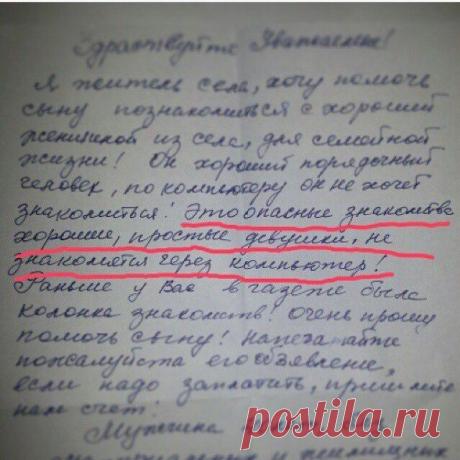 Здраствуйте Уважаемые!
Я житель села, хочу помочь
сыну познакомиться с хорошей
женщиной из села, для семейной
жизни! Он хороший порядочный
человек, по компьютеру он не хочет
знакомиться! Это опасные знакомства
хорошие, простые девушки, не
знакомятся через компьютер!
Раньше у Вас в газете была
колонка знакомств! Очень прошу
помочь сыну! Напечатайте
пожалуйста его обявление,
если надо заплатить, пришлите
нам счёт!
Мужчина
и жилищных
postila.ru